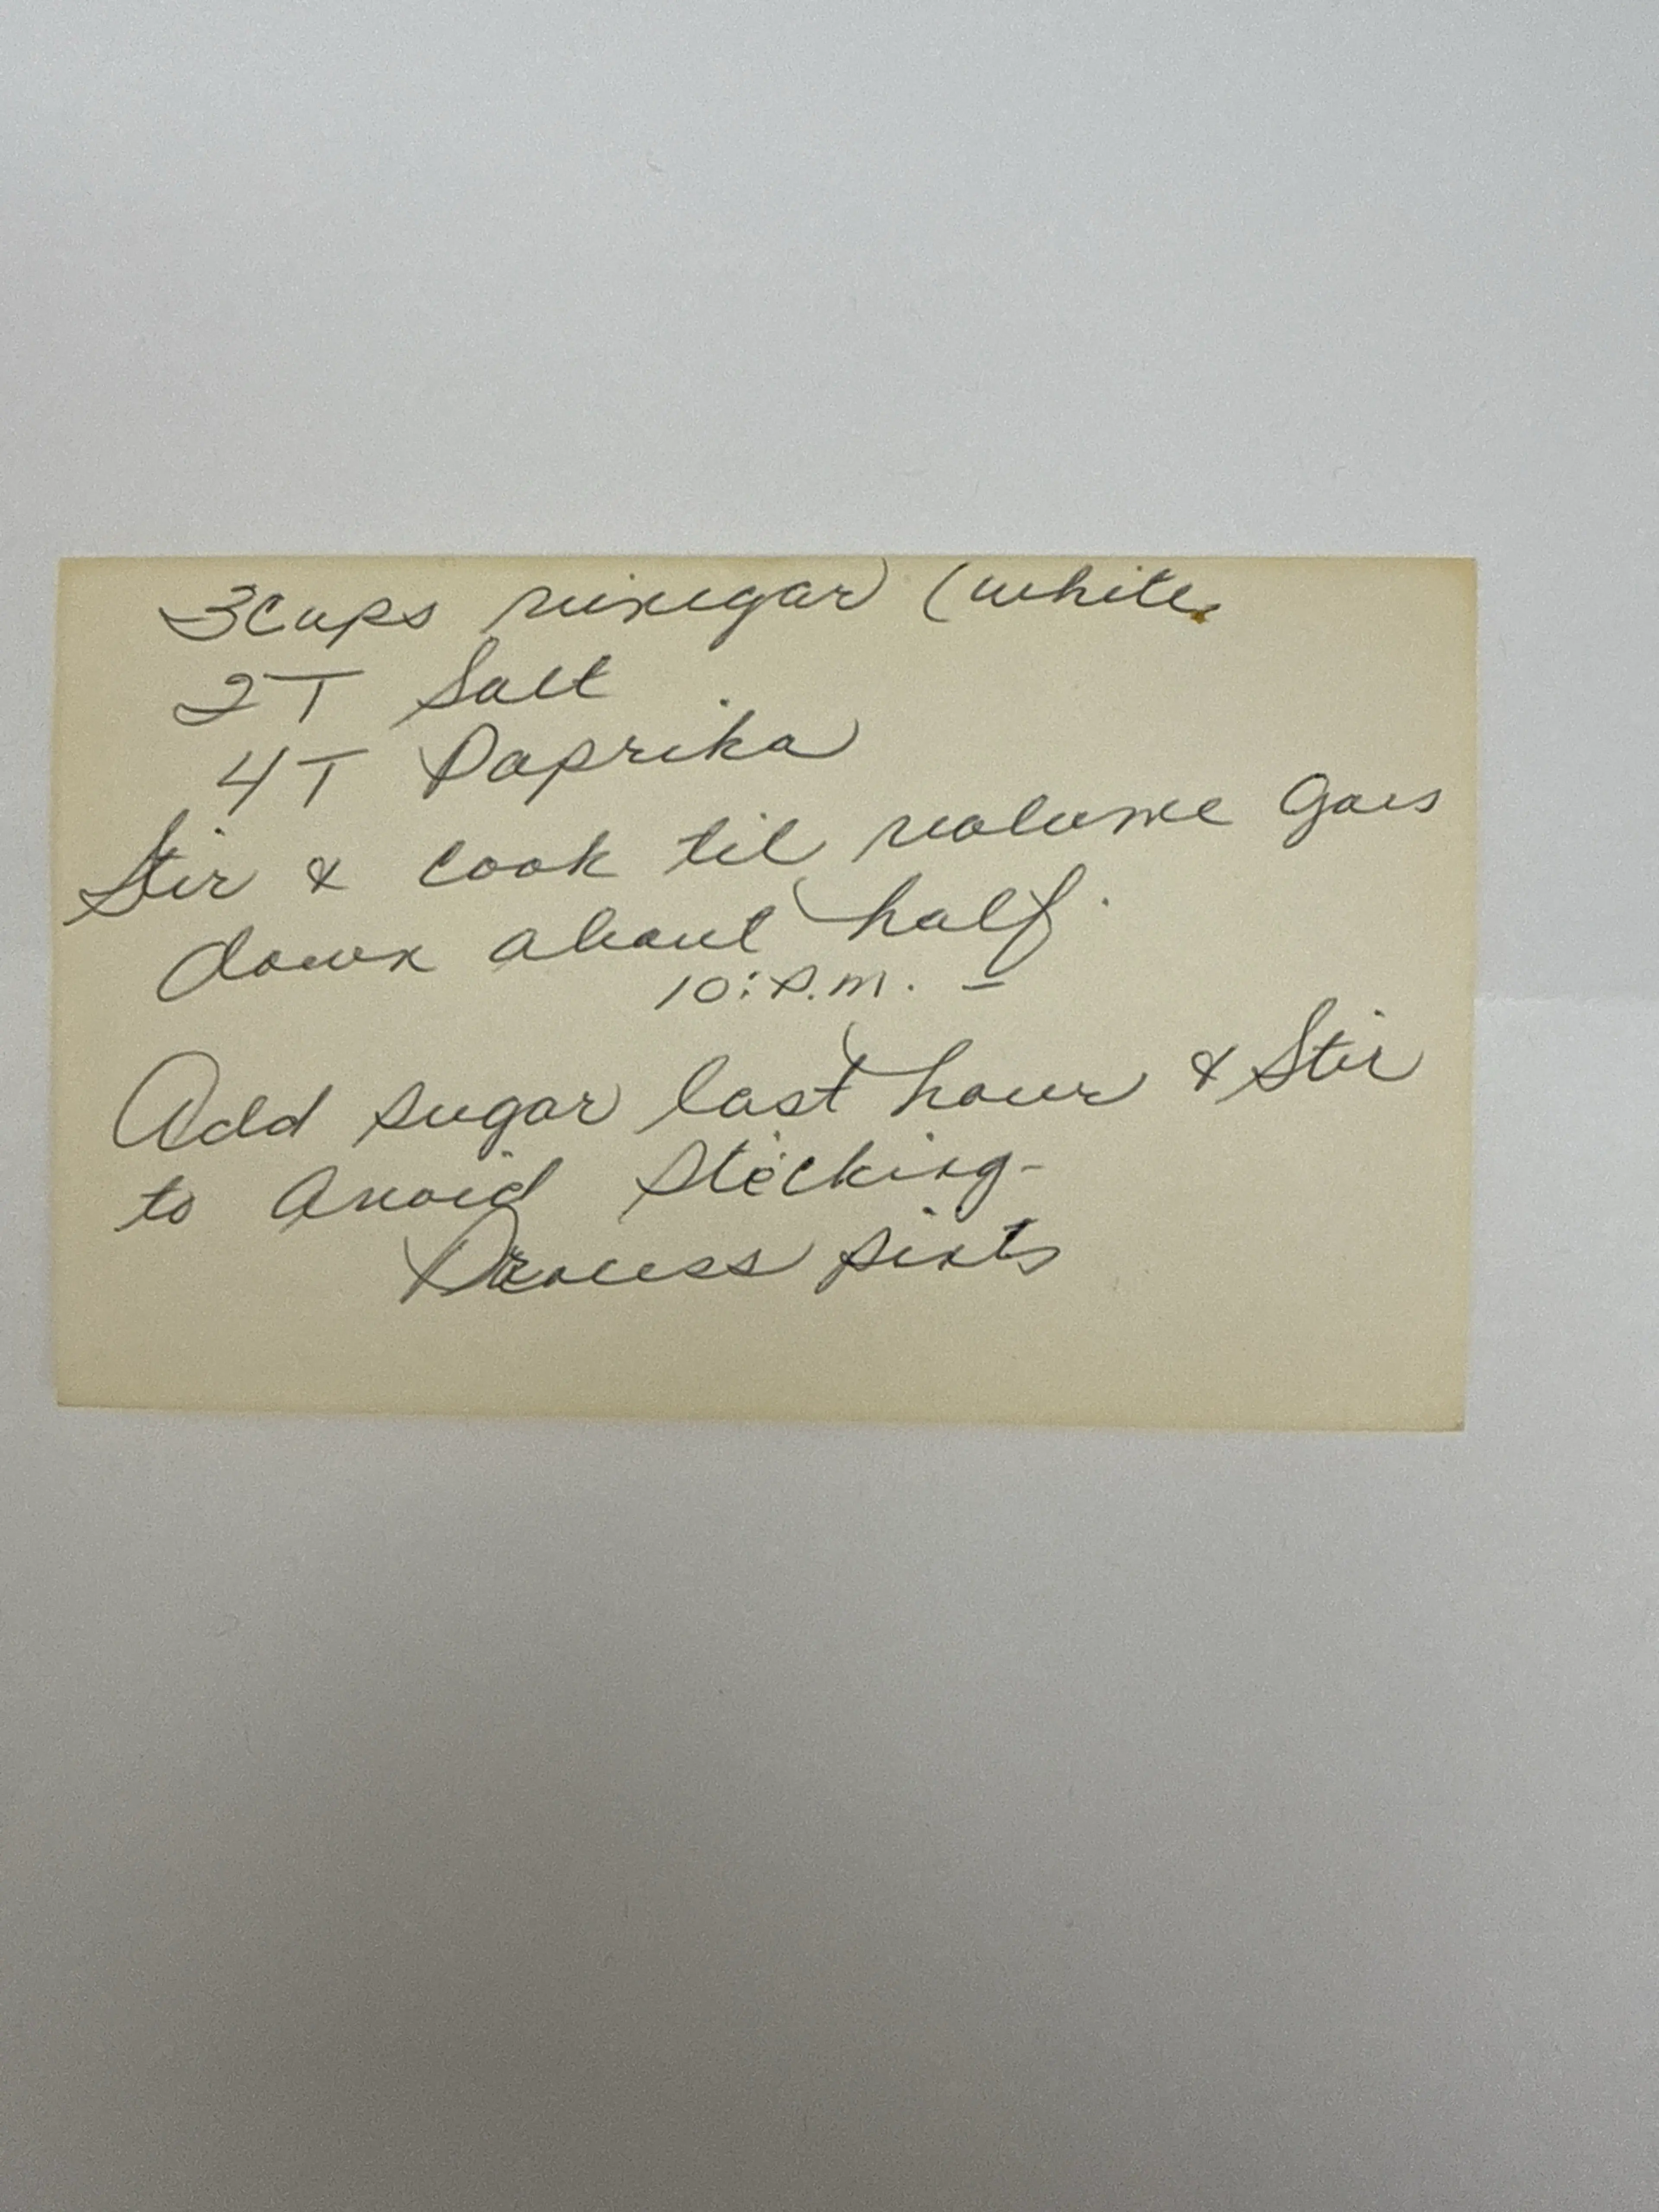 3 cups vinegar (white
2 T Salt
4 T Paprika
Stir & cook til volume goes
down about half.
10: P.M. —
Add sugar last hour & Stir
to avoid sticking-
Process pints